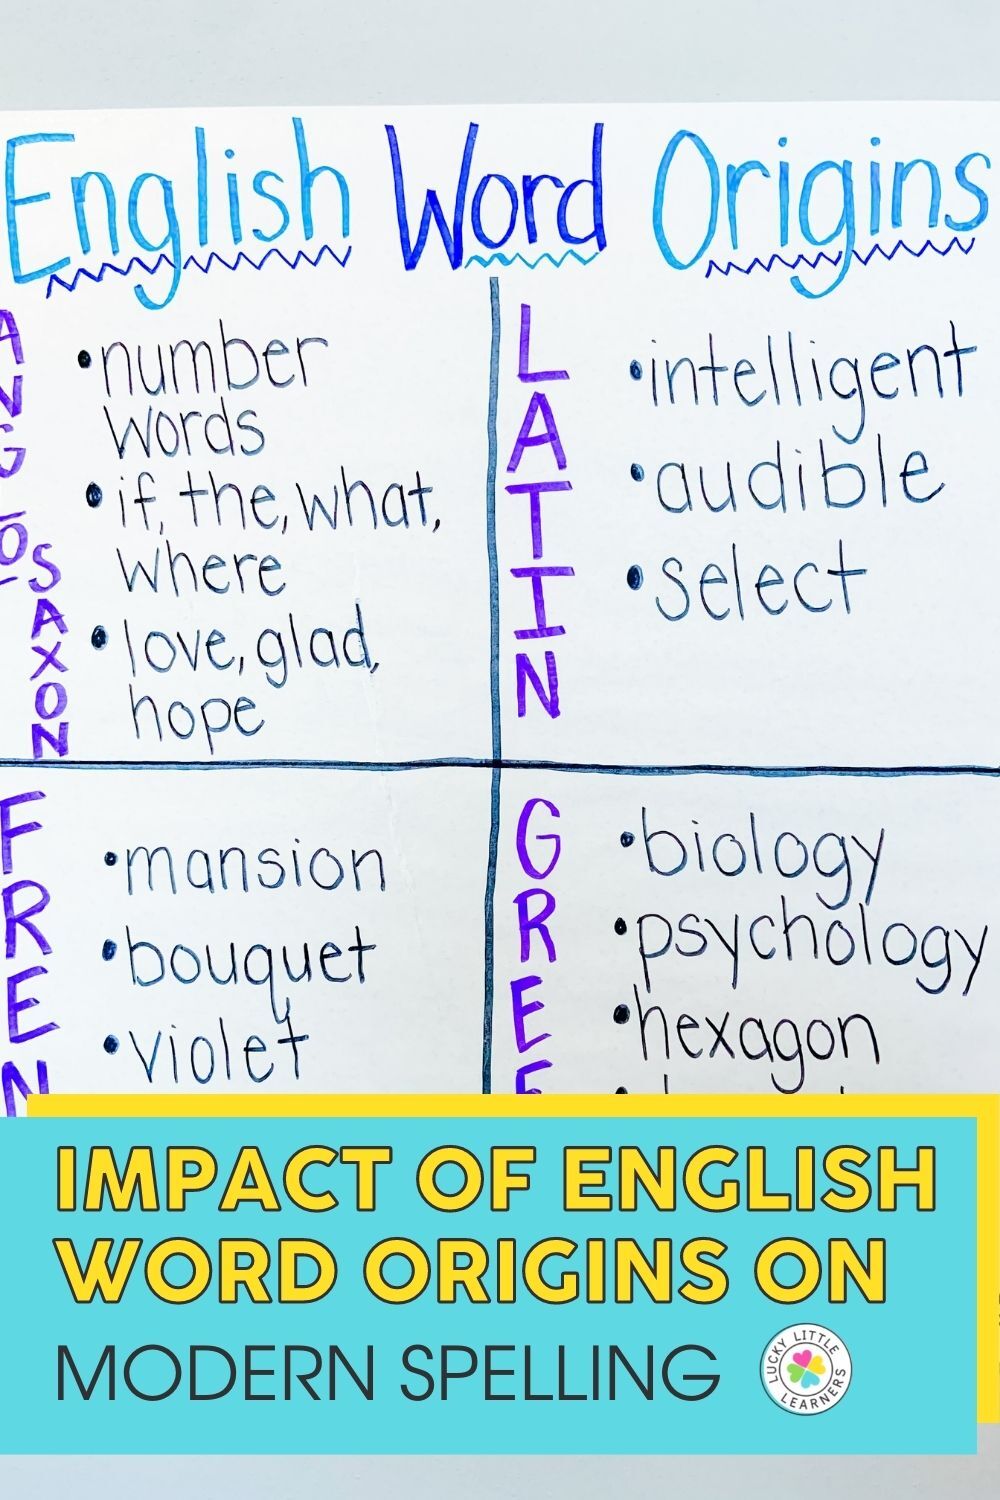 English Word Origins
ANGLO
SAXON
•number
words
•if, the, what,
where
•love, glad,
hope
LATIN
•intelligent
•audible
•select
FREN
•mansion
•bouquet
•violet
GREE
•biology
•psychology
•hexagon
IMPACT OF ENGLISH
WORD ORIGINS ON
MODERN SPELLING
LUCKY LITTLE
LEARNERS